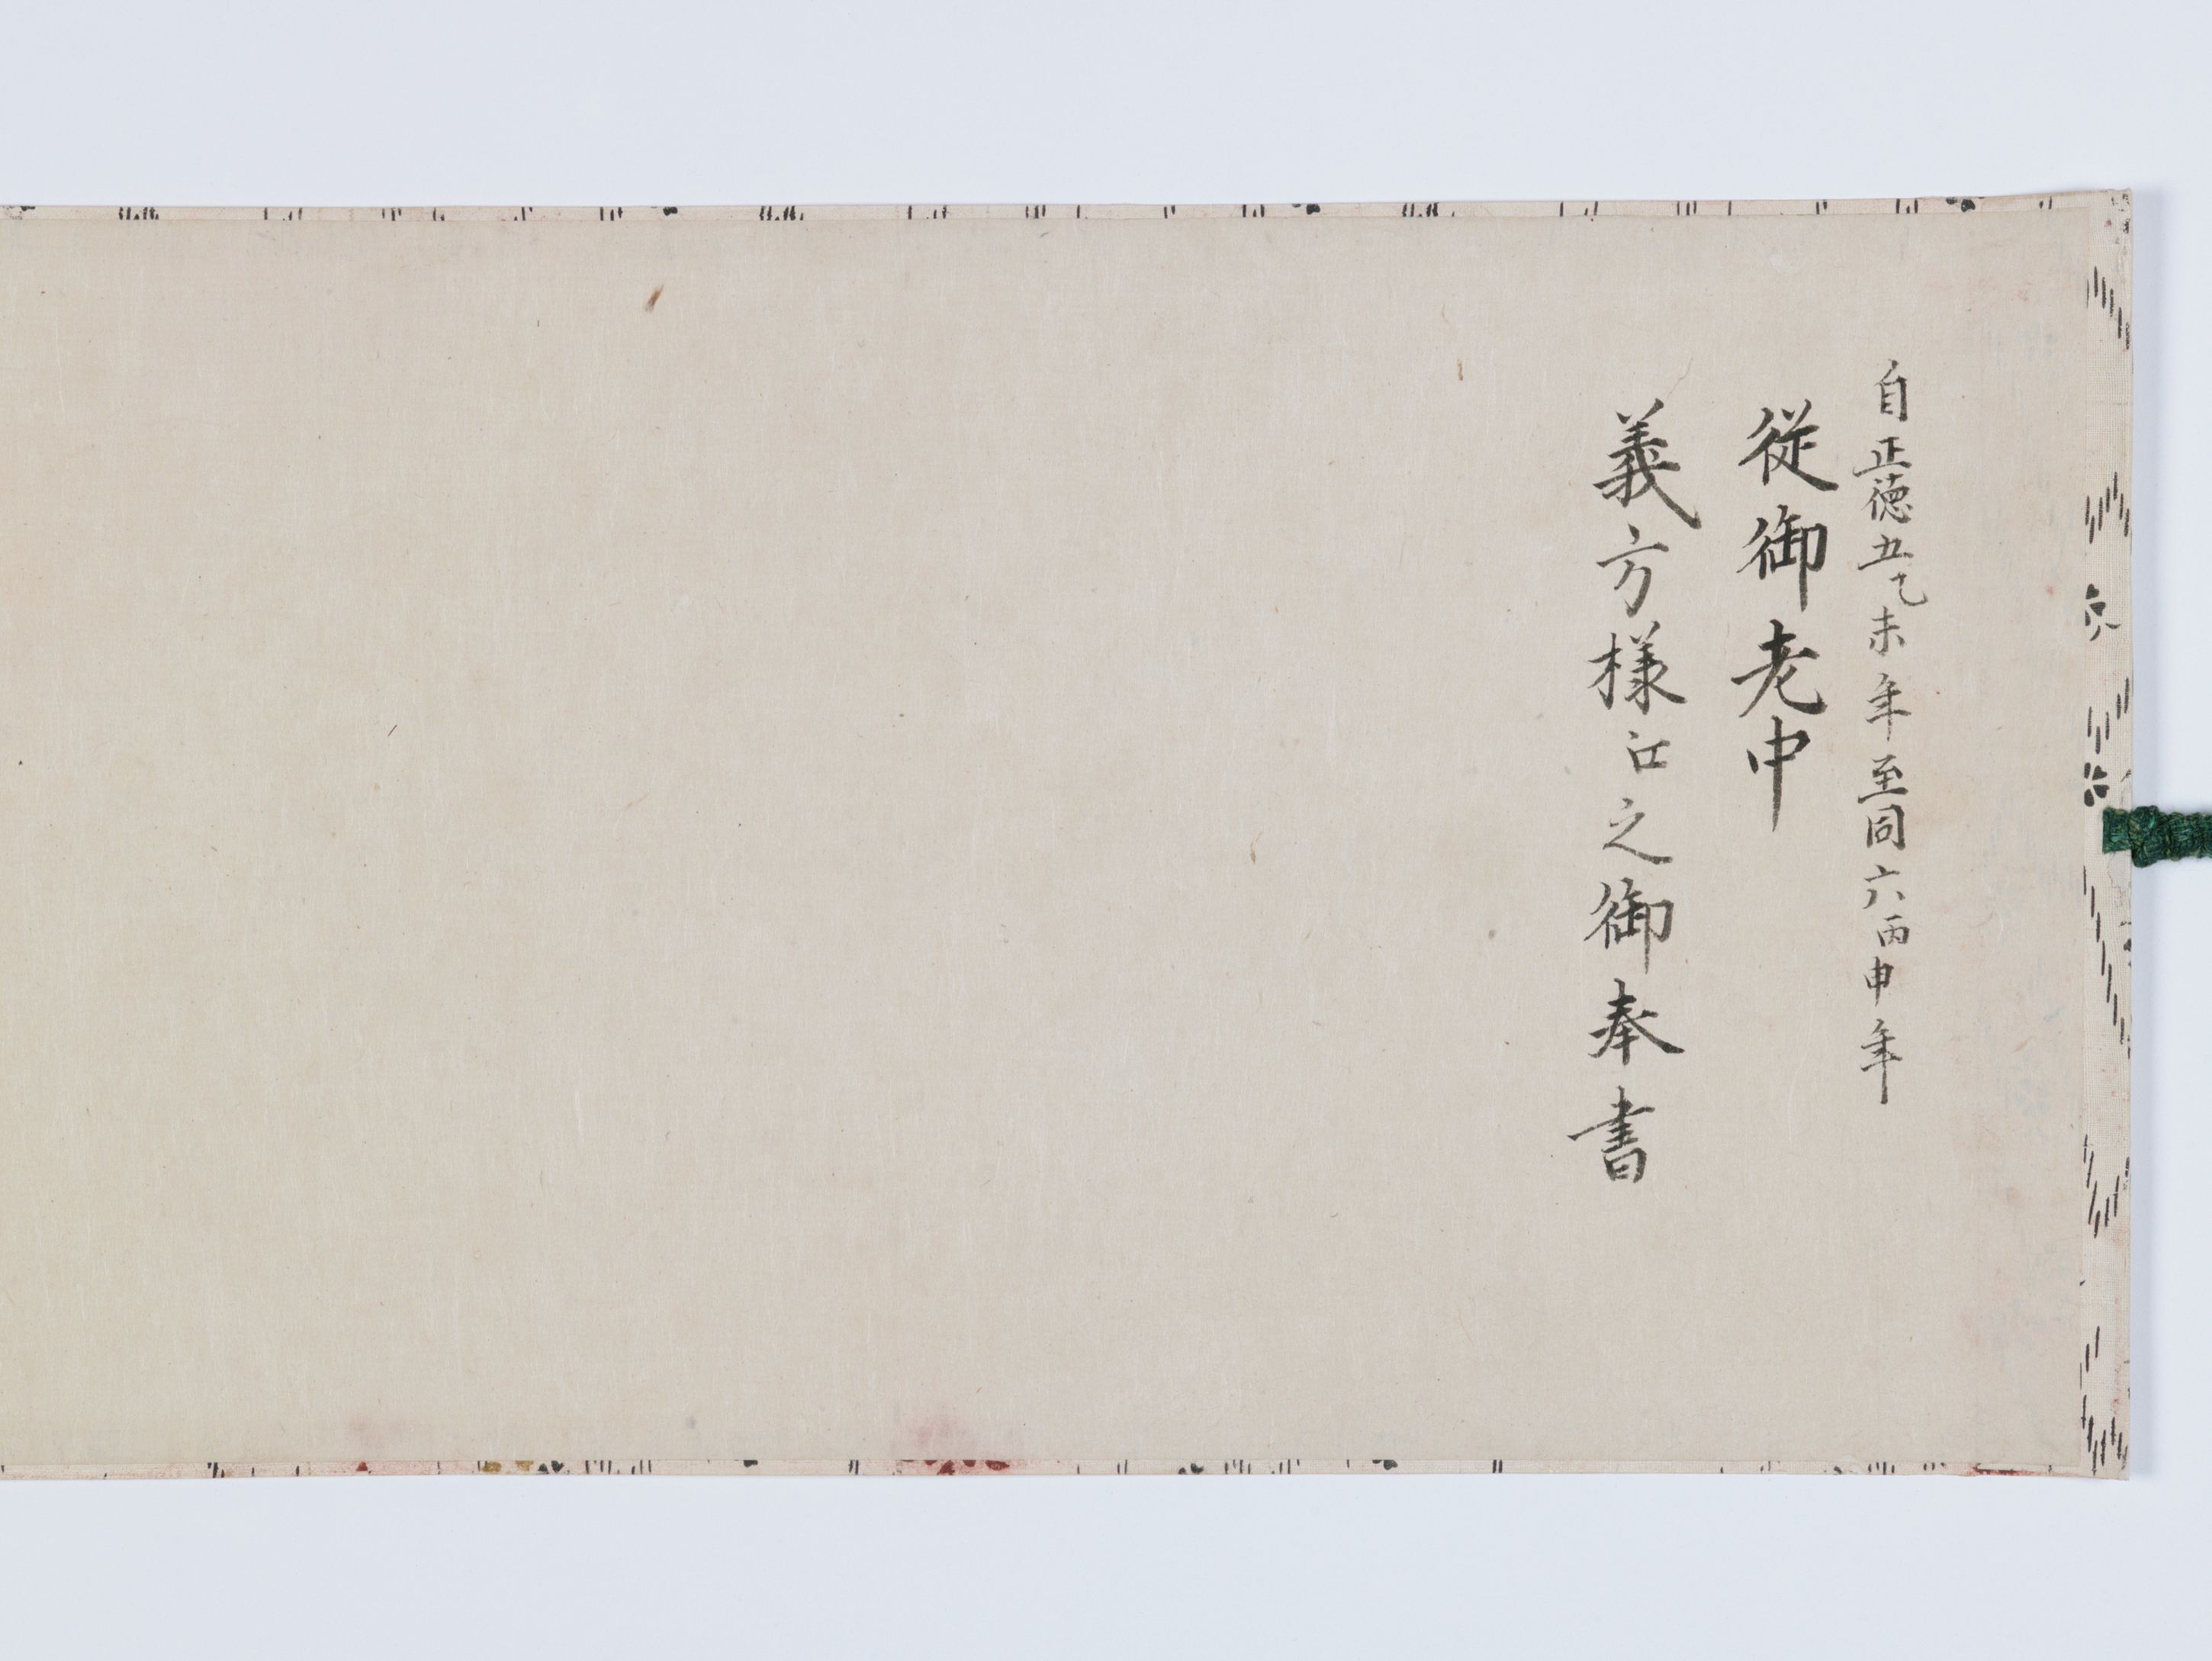 自正徳五乙未年至同六丙申年
従御老中
義方様江之御奉書